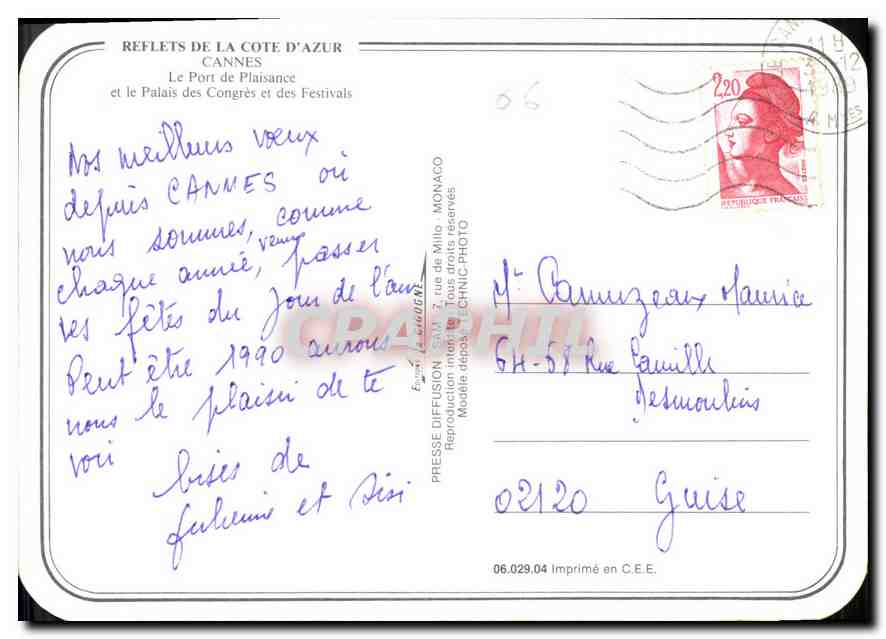 REFLETS DE LA COTE D'AZUR
CANNES
Le Port de Plaisance
et le Palais des Congrès et des Festivals
06
Nos meilleurs vœux
depuis CANNES où
nous sommes, comme
chaque année, venus passer
les fêtes du Jour de l'an
Peut être 1990 aurons
nous le plaisir de te
voir
bises de
et Sisi
Editions "La CIGOGNE"
PRESSE DIFFUSION SAM - 7, rue de Millo - MONACO
Reproduction interdite - Tous droits réservés
Modèle déposé TECHNIC-PHOTO
CRAPHIL
2,20
REPUBLIQUE FRANÇAISE
11 H
12
Mr Maurice
64-68 Rue Camille
Desmoulins
02120 Guise
06.029.04 Imprimé en C.E.E.